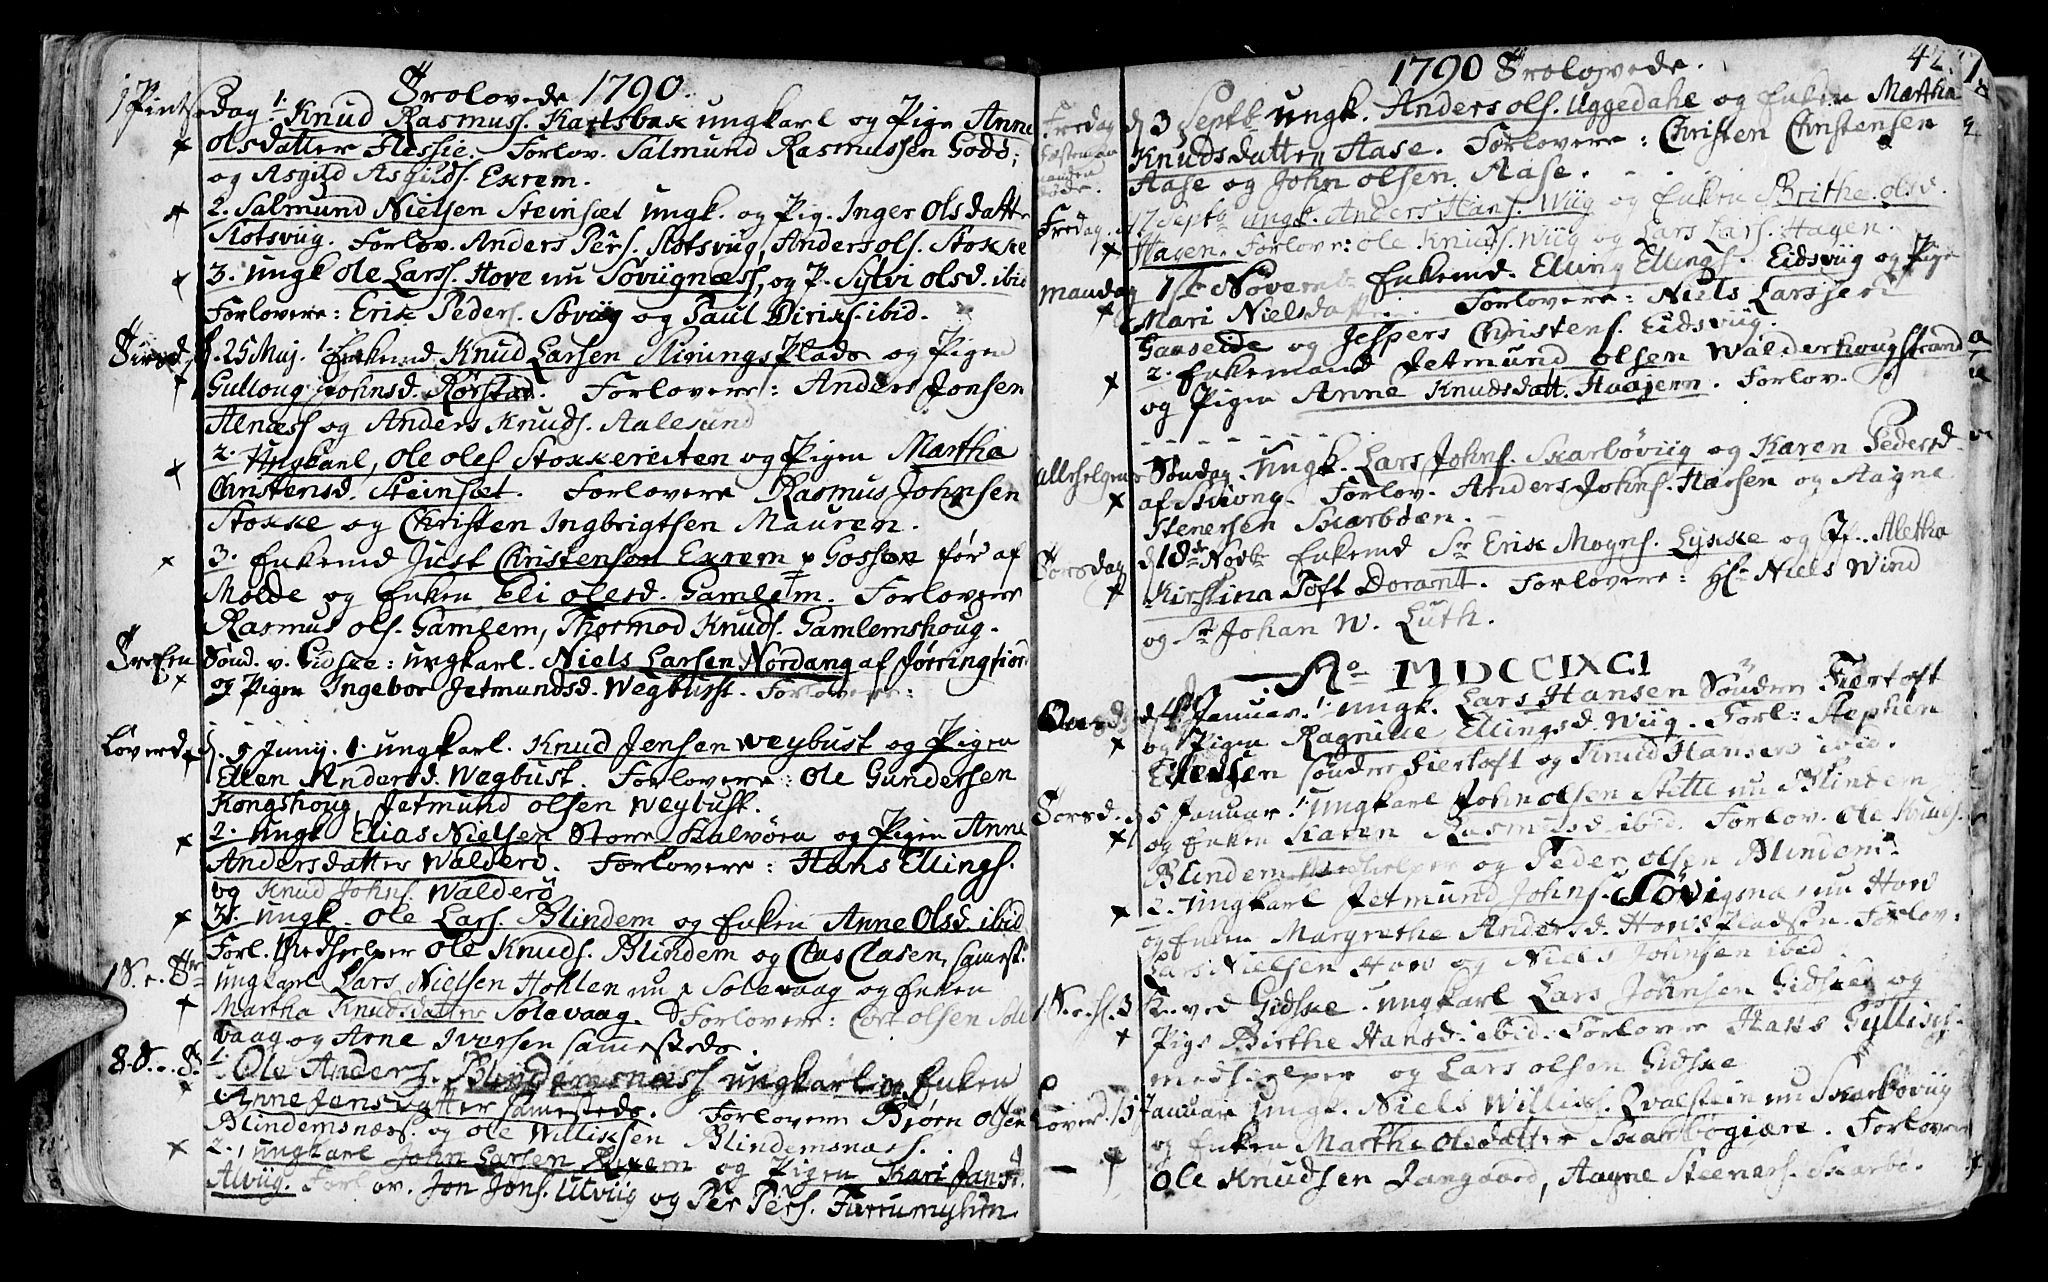 Trolovede 1790.
1 Pintsedag 1. Knud Rasmuss. Karlsbax ungkarl og Pigen Anne
olsdatter Flessie. Forlov. Salmund Rasmussen Godø;
og Asgild Asgilds. Exrem.
2. Salmund Nielsen Steinsæt ungk. og Pig. Inger Olsdatte
Slotsviig. Forlov. Anders Pers. Slotsviig, Anders ols. Stokke
3. ungk Ole Larss. Hove nu Søviignæss, og P. Sylvi olsd. ibid
Forlovere: Erik Peders. Søviig og Paul Dirixs. ibid.
d. 25 Maj. 1. Enkemd. Knud Larsen Plads og Pigen
Gulloug Johnsd. Rørstad. Forlovere: Anders Jonsen
Alnæss og Anders Knuds. Aalesund
2. Ungkarl, Ole Oles Stokkereiten og Pigen Martha
Christensd. Steinsæt. Forlovere Rasmus Johnsen
Stokke og Christen Ingbrigtsen Mauren.
3. Enkemd Just Christenson Exrem p Gossen før af
Molde og Enken Eli olesd. Gamlem. Forlovere
Rasmus ols. Gamlem, Thormod Knuds. Gamlemshoug.
Sønd. v. Gidske: ungkarl. Niels Larsen Nordang af Jørringfior
og Pigen Ingebor Jetmundsd. Wegbust. Forlovere:
Løverd. d. 5 Junij. 1. ungkarl. Knud Jensen Weybust og Pigen
Ellen Andersd. Wegbust. Forlovere: Ole Gundersen
Kongshoug, Jetmund olsen Weybust.
2. ungk Elias Nielsen Store Kalvøen og Pigen Anne
Andersdatter Walderø. Forlovere: Hans Ellings.
og Knud Johns. Walderø
3. ungk. Ole Lars. Blindem og Enken Anne Olsd. ibid
Forl. Medhielper Ole Knuds. Blindem og Clas Clasen, samest.
ungkarl Lars Nielsen Hohlen nu p Solevaag og Enken
Martha Knudsdatter Solavaag. Forlovere: Cort olsen Sole
vaag og Arne Iversen sammesteds.
8. S. 1. Ole Anders. Blindemsnæss ungkarl og Enken
Anne Jensdatter samesteds. Forlovere Bjørn olsen
Blindemsnæss. og Ole Willixsen Blindemsnæss.
2., ungkarl John Larsen Exrem og Pigen Kari Jansd.
Alviig. Forlov. Jon Jons. Utviig og Per Pers.
1790 Trolovede. 42.
Fredag d 3 Septb ungk. Anders ols. Uggedahl og Enken Martha
Knudsdatter Aase. Forlovere: Christen Christensen
Aase og John olsen Aase.
Fredag. 17 Septb ungk. Anders Hans. Wiig og Enken Brithe olsd.
Hagen. Forlove: Ole Knuds. Wiig og Lars Lars. Hagen.
Mandag 1ste Novemb. Enkemd. Elling Ellings. Eidsviig og Pige
Mari Nielsdatter. Forlovere: Niels Larssen
Gaaseide og Jespers Christens. Eidsviig.
2. Enkemand Jetmund olsen Walderhougstrand
og Pigen Anne Knudsdatt. Haajem. Forlov.
Allehelgens Søndag. Ungk. Lars Johns. Skarbøviig og Karen Pedersd.
af Skiong. Forlov. Anders Johns. Hæssen og Aagne
Stenersen Skarbøen.
Torsdag d 18de Novb Enkemd Sr Erik Mogns. Lykke og Jf. Aletha
Kirstina Toft Dorant. Forlovere: Hr Niels Wind
og Sr Johan W. Luth.
Ao MDCCIXCI
Januar. 1. ungk. Lars Hansen Sønder Fiertoft
og Pigen Ragnille Ellingsd. Wiig. Forl: Stephen
Ellensen sønder Fiertoft og Knud Hansen ibid.
Torsd. d 5 Januar 1. Ungkarl John olsen Stette nu Blindem
og Enken Karen Rasmusd. ibid. Forlov. Ole Knuds.
Blindem Medhielper og Peder olsen Blindem.
2. Ungkarl Jetmund Johns. Søvigsnæs nu Hove
og Enken Margrethe Andersd. Hovs Pladsen. Forlov:
Lars Nielsen Hov og Niels Johnsen ibed
ved Gidske. ungkarl Lars Johnsen Gidske og
Pige Birthe Hansd. ibid. Forlover Hans Gyllixs.
medhielper og Lars olsen Gidske
Løverd. Januari Ungk. Niels Willixs. Qvalstein nu Skarbøviig
og Enken Marthe Olsdatter Skarbøgiære. Forlovere
Ole Knudsen Jangaard, Aagne Steeners. Skarbø.